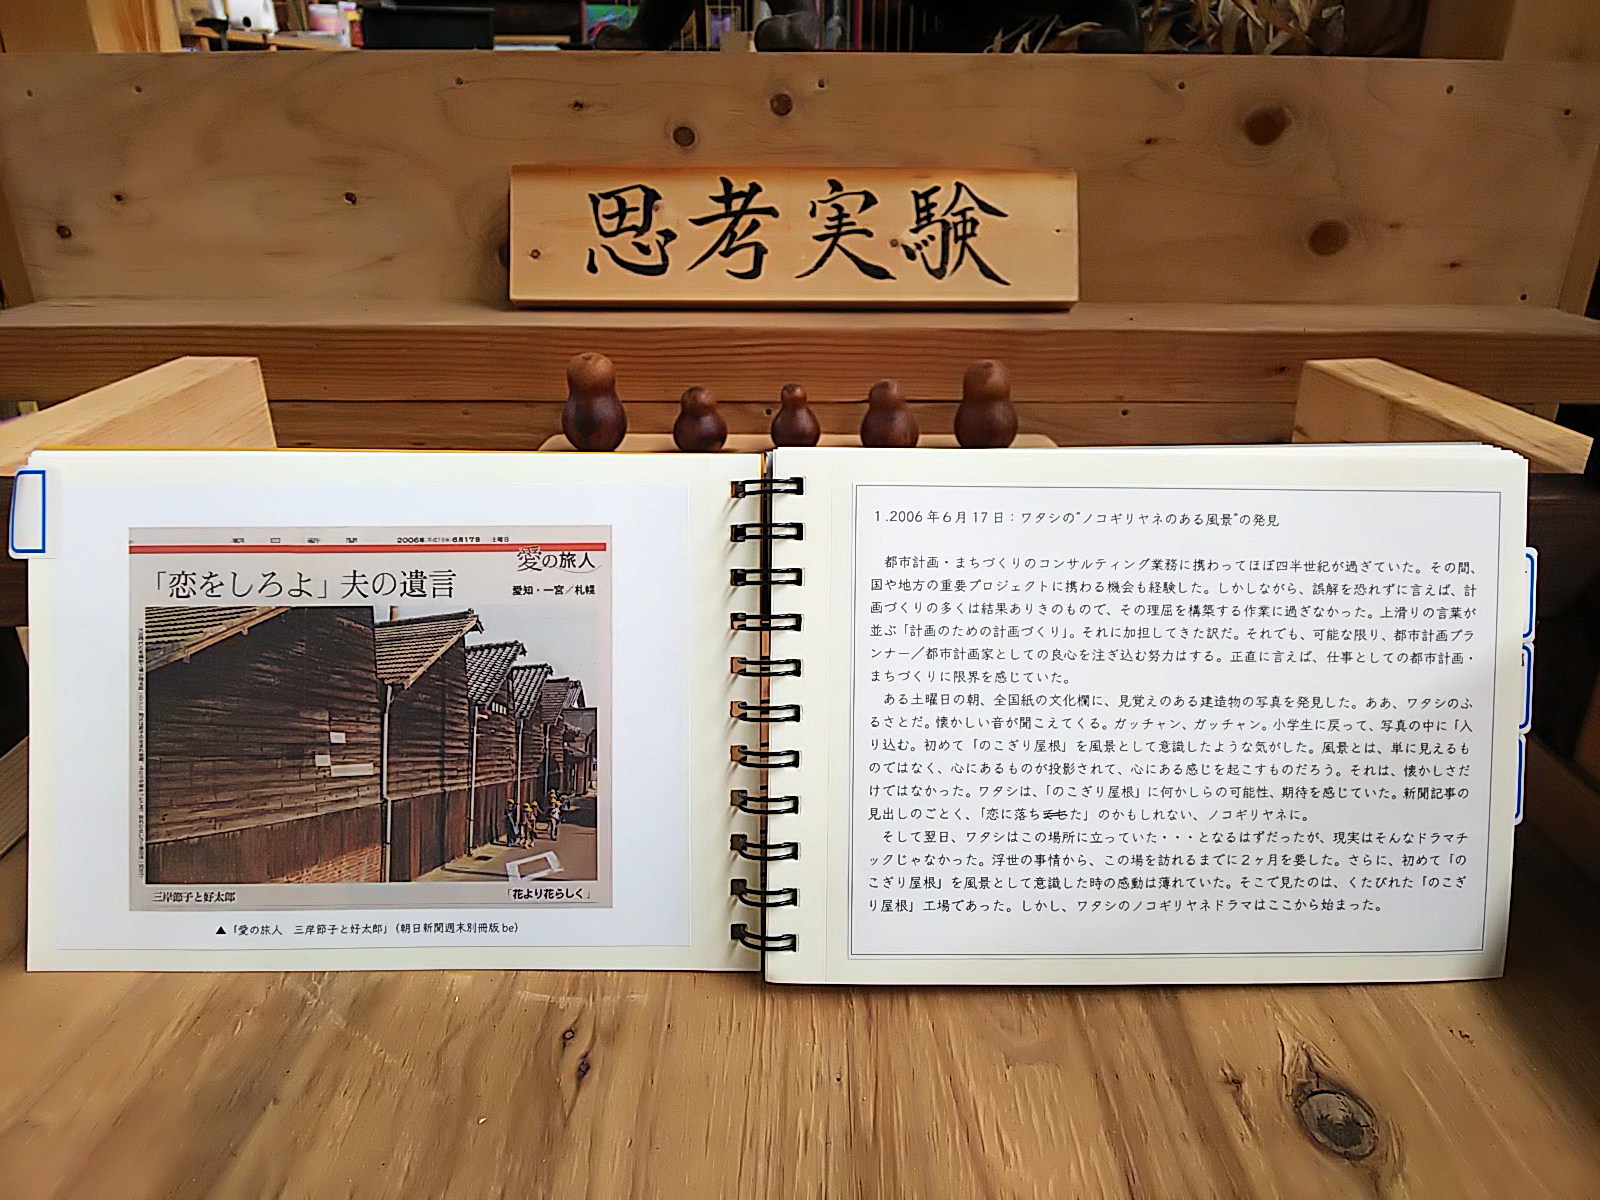 思考実験
朝日新聞 2006年(平成18年)6月17日 土曜日
愛の旅人
「恋をしろよ」夫の遺言
愛知・一宮/札幌
三岸節子と好太郎
「花より花らしく」
▲「愛の旅人 三岸節子と好太郎」(朝日新聞週末別冊版be)
1.2006年6月17日:ワタシの"ノコギリヤネのある風景"の発見
都市計画・まちづくりのコンサルティング業務に携わってほぼ四半世紀が過ぎていた。その間、
国や地方の重要プロジェクトに携わる機会も経験した。しかしながら、誤解を恐れずに言えば、計
画づくりの多くは結果ありきのもので、その理屈を構築する作業に過ぎなかった。上滑りの言葉が
並ぶ「計画のための計画づくり」。それに加担してきた訳だ。それでも、可能な限り、都市計画プラ
ンナー/都市計画家としての良心を注ぎ込む努力はする。正直に言えば、仕事としての都市計画・
まちづくりに限界を感じていた。
ある土曜日の朝、全国紙の文化欄に、見覚えのある建造物の写真を発見した。ああ、ワタシのふ
るさとだ。懐かしい音が聞こえてくる。ガッチャン、ガッチャン。小学生に戻って、写真の中に「入
り込む。初めて「のこぎり屋根」を風景として意識したような気がした。風景とは、単に見えるも
のではなく、心にあるものが投影されて、心にある感じを起こすものだろう。それは、懐かしさだ
けではなかった。ワタシは、「のこぎり屋根」に何かしらの可能性、期待を感じていた。新聞記事の
見出しのごとく、「恋に落ちてもた」のかもしれない、ノコギリヤネに。
そして翌日、ワタシはこの場所に立っていた・・・となるはずだったが、現実はそんなドラマチ
ックじゃなかった。浮世の事情から、この場を訪れるまでに2ヶ月を要した。さらに、初めて「の
こぎり屋根」を風景として意識した時の感動は薄れていた。そこで見たのは、くたびれた「のこぎ
り屋根」工場であった。しかし、ワタシのノコギリヤネドラマはここから始まった。